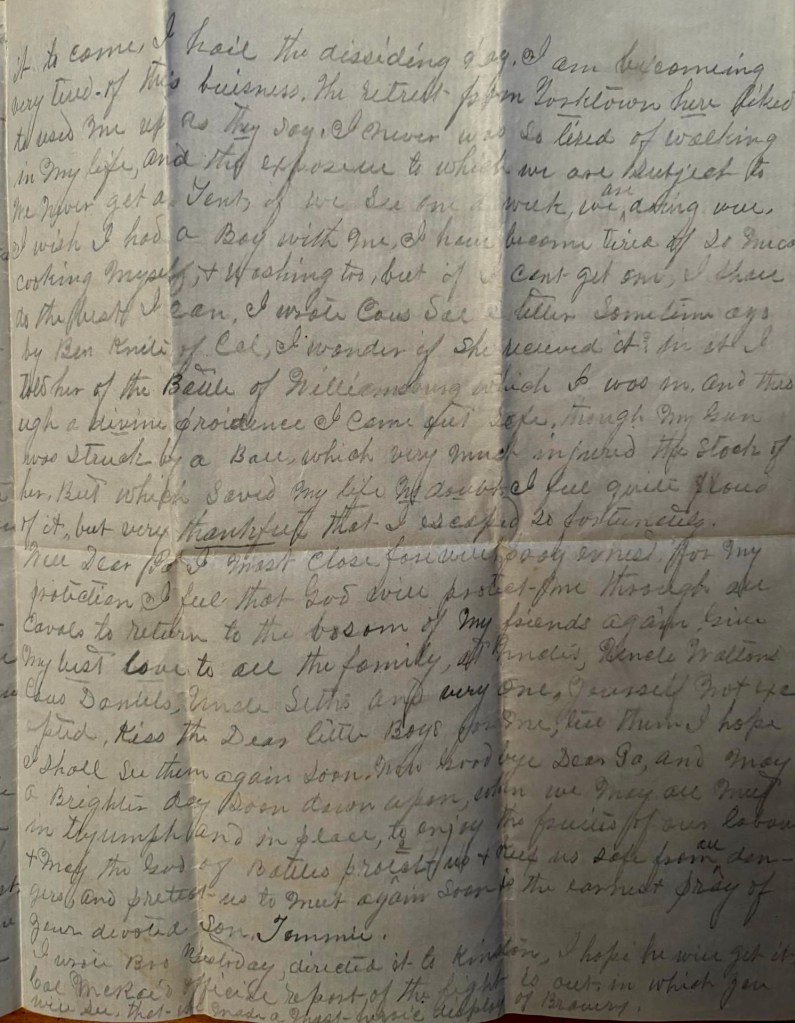 it to come, I hail the dissiding day. I am becoming
very tired of this buisness. The retreat from Yorktown here liked
to used me up as they say. I never was so tired of walking
in my life, and the exposeur to which we are subject to
We never get a Tent, if we see one a week, we are doing well.
I wish I had a Boy with me, I have become tired of so much
cooking myself, & washing too, but if I cant get one, I shall
do the best I can. I wrote Cous Sal a letter sometime ago
by Ben of Col, I wonder if she recieved it? In it I
told her of the Battle of Williamsburg which I was in. and thro
ugh a divine providence I came out safe, though my Gun
was struck by a Ball, which very much injured the stock of
her. But which saved my life no doubt. I feel quite proud
of it, but very thankful that I escaped so fortunately.
Well Dear Pa I must close for my
protection I feel that God will protect me through all
to return to the bosom of my friends again. Give
my best love to all the family, at Uncle Waltons
Cous Daniels, Uncle Seths and very one, Yourself not exc
epted. Kiss the Dear little Boys for me, tell them I hope
I shall see them again soon. Now Good bye Dear Pa, and may
a Brighter day soon dawn upon, when we may all meet
in tryumph and in peace, to enjoy the fruits of our labour
& may the God of Battles protect us & keep us safe from all dan-
gers, and protect us to meet again soon is the earnest pray of
your devoted Son, Tommie.
I wrote Bro yesterday, directed it to Kinston, I hope he will get it
Col McRae's official report of the fight is out, in which you
will see that made a most heroic display of Bravery.